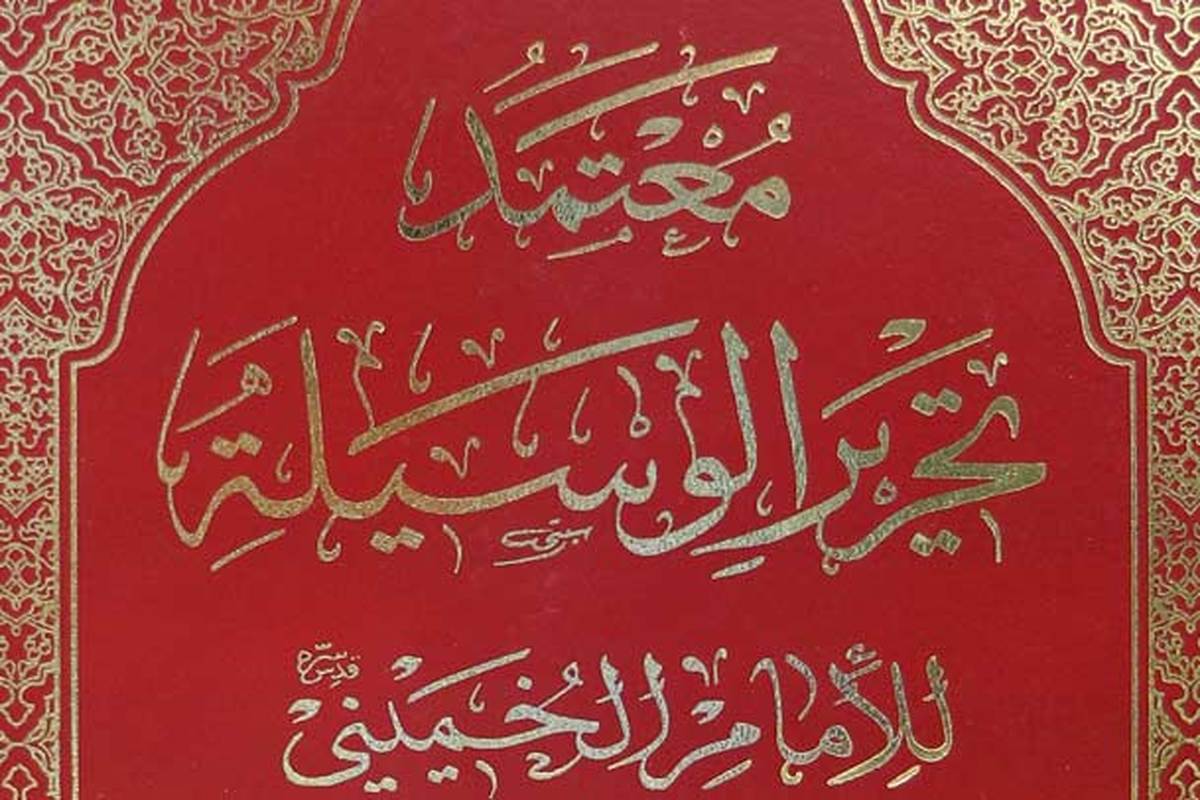 مُعْتَمَدُ
تَحْرِيرِ الْوَسِيلَةِ
لِلْإِمَامِ الْخُمَيْنِيِّ قدّس سرّه